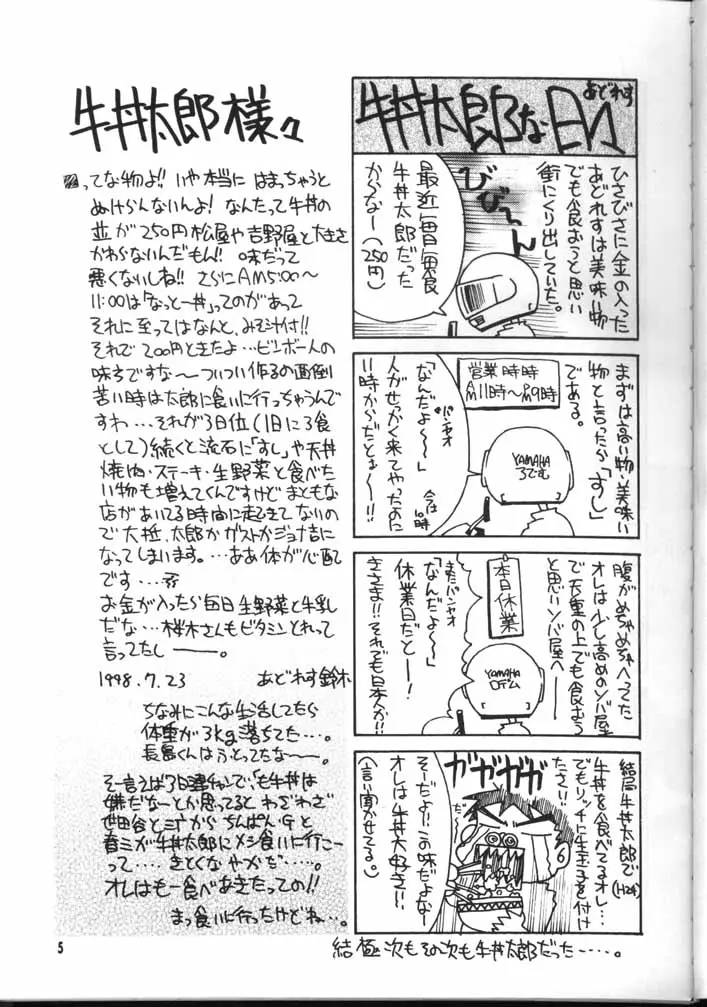 牛丼太郎な日々
あどれす
ひさびさに金の入った
あどれすは美味い物
でも食おうと思い
街にくり出していた。
びびーん
最近毎日毎食
牛丼太郎だった
からなー(250円)
まずは高い物・美味い
物と言ったら「すし」
である。
営業時時
AM11時〜PM9時
YAMAHA
ろでむ
「なんだよ〜〜」
パンャオ
人がせっかく来てやったのに
11時からだとぉ〜!!
今は10時
腹がめちゃめちゃへってた
オレは少し高めのソバ屋
で天重の上でも食おう
と思いソバ屋へ――
本日休業
YAMAHA
ロデム
またパンャオ
「なんだよ〜〜」
休業日だと――!
きさま!!それでも日本人か!!
結局牛丼太郎で
牛丼を食べてるオレ…
でもリッチに生玉子を付け
たさ!!
ガガガガ
そーだよ!!この味だよなー
オレは牛丼大好き!!
(言い聞かせてる。)
結極次もその次も牛丼太郎だった……。
牛丼太郎様々
ってな物よ!!いや本当にはまっちゃうと
ぬけらんないんよ!なんたって牛丼の
並が250円松屋や吉野屋と大きさ
かわらないんだもん!!味だって
悪くないしね!!さらにAM5:00〜
11:00は「なっとー丼」ってのがあって
それに至ってはなんと、みそ汁付!!
それで200円ときたよ…ビンボー人の
味方ですな〜ついつい作るの面倒
苦い時は太郎に食いに行っちゃうんで
すわ…それが3日位(1日に3食
として)続くと流石に「すし」や天丼
焼肉・ステーキ・生野菜と食べた
い物も増えてくんですけどまともな
店があいてる時間に起きてないの
で大抵、太郎かガストかジョナ吉に
なってしまいます。…ああ体が心配
です…
お金が入ったら毎日生野菜と牛乳
だな…桜木さんもビタミンとれって
言ってたし――。
1998.7.23
あどれす鈴木
ちなみにこんな生活してたら
体重が3kg落ちてた…。
長島くんはふとってたな〜〜。
そー言うば3日連チャンで、「も牛丼は
嫌だなーとか思ってると わざわざ
世田谷と三丁から ちんぱん・Gと
春ミが牛丼太郎にメシ食いに行こー
って……きとくな やかだ……。
オレはもー食べあきたっての!!
まっ食いに行ったけどね…。
5